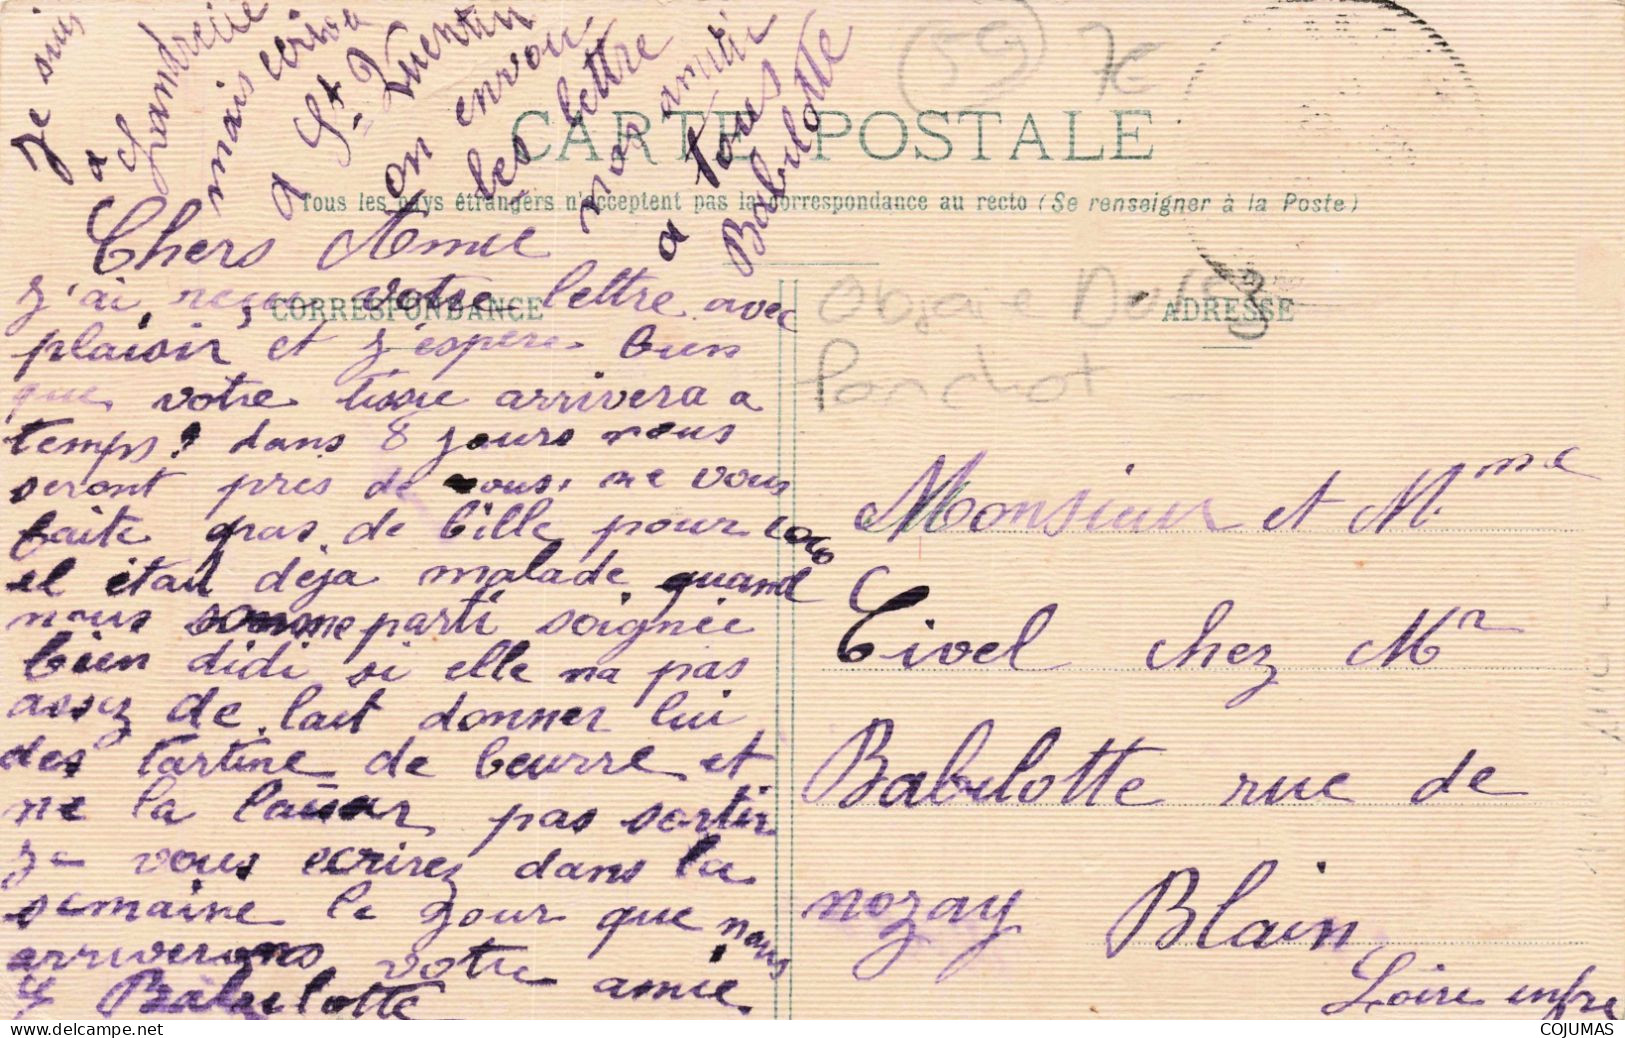 Je suis
a Landrecie
mais ecriva
a St Quentin
on envoi
les lettre
nos amitié
a tous
Babulotte
(59) 7€
CARTE POSTALE
Tous les pays étrangers n'acceptent pas la correspondance au recto (Se renseigner à la Poste)
CORRESPONDANCE
ADRESSE
Ponchot
Chers Amie
j'ai reçu votre lettre avec
plaisir et j'espere bien
que votre tissie arrivera a
temps! dans 8 jours nous
seront pres de vous, ne vous
faite pas de bille pour coco
il etait déja malade quand
nous somme parti soignée
bien didi si elle na pas
assez de lait donner lui
des tartine de beurre et
ne la laisser pas sortir
je vous ecrirez dans la
semaine le jour que nous
arriverons votre amie
Babulotte
Monsieur et Mme
Tivel chez Mr
Babulotte rue de
nozay Blain
Loire infre
COJUMAS